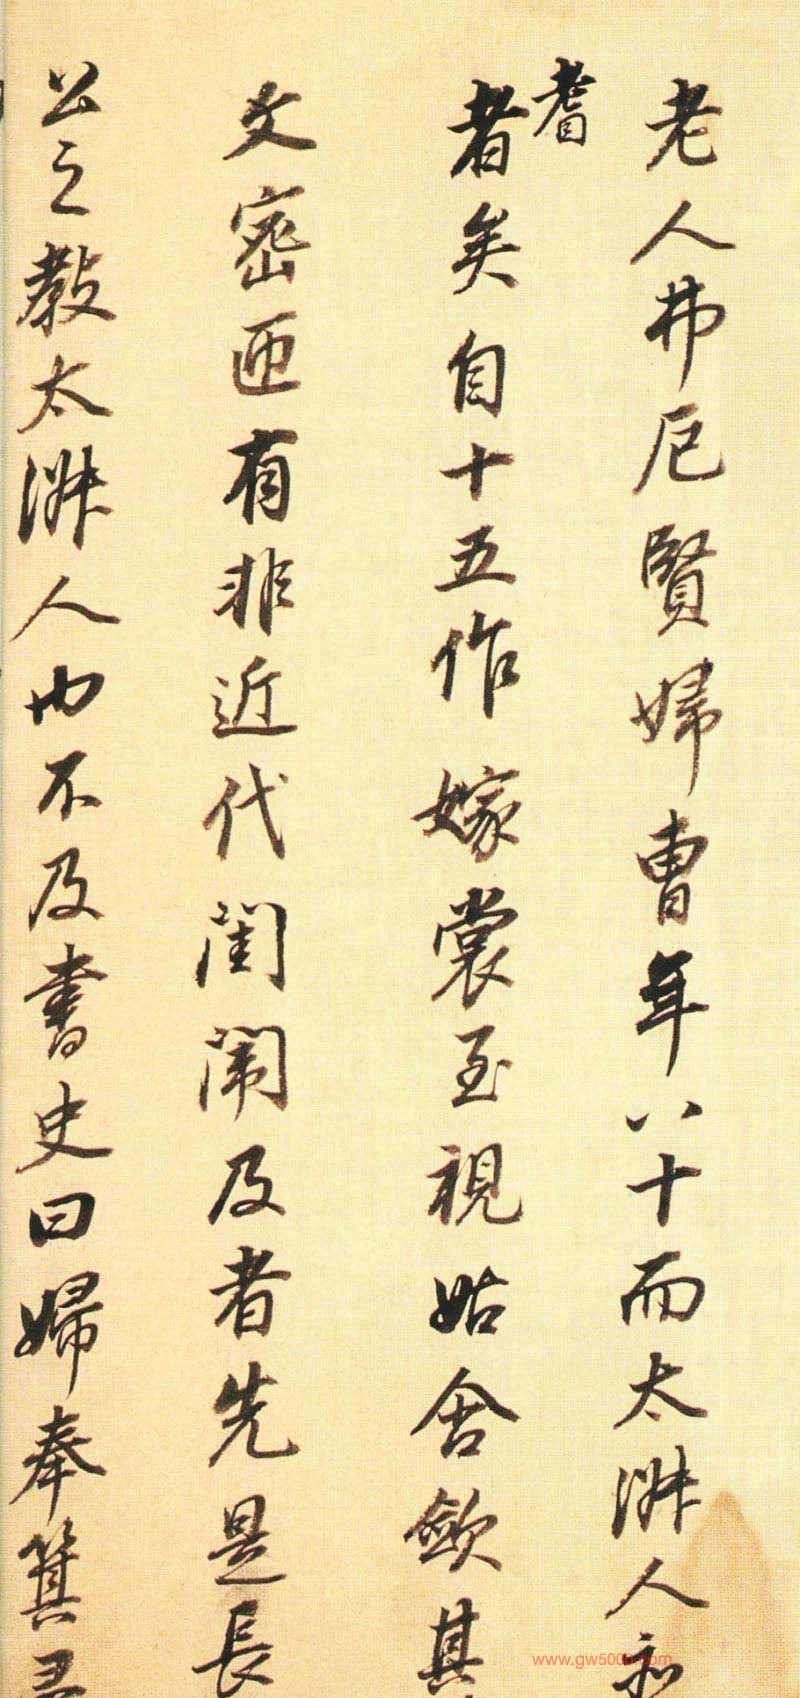 老人弗厄賢婦曹年八十而太淑人和
耆
者矣自十五作嫁裳至視姑舍斂其
文密匝有非近代閨闈及者先是長
公之教太淑人也不及書史曰婦奉箕
www.gw500.com